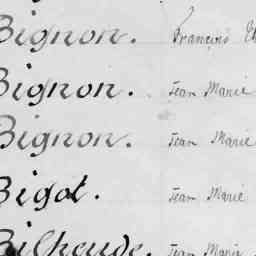 Bignon. François
Bignon. Jean Marie
Bignon. Jean Marie
Bigot. Jean Marie
Bilheude. Jean Marie